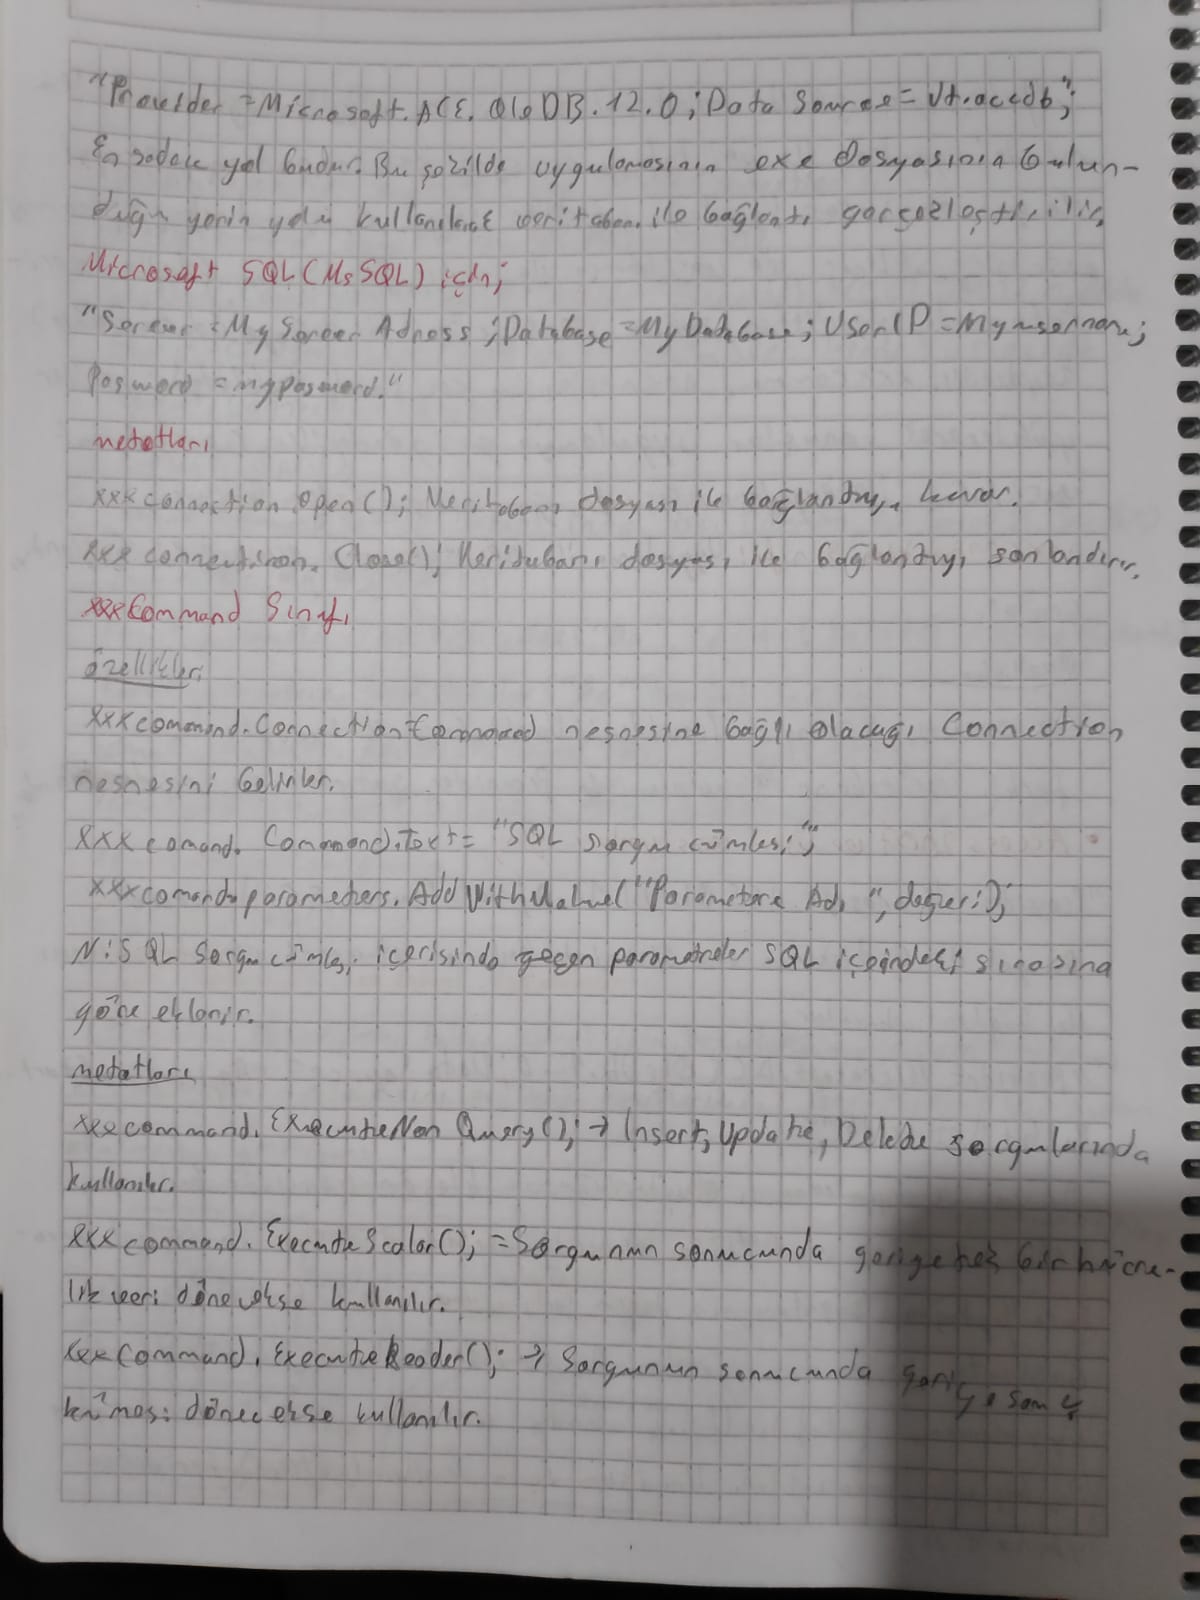 "Provider = Microsoft.ACE.OleDB.12.0; Data Source = Vt.accdb";
En sade yol budur. Bu şekilde uygulamasının exe dosyasının bulun-
duğu yerin yolu kullanılarak veritabanı ile bağlantı gerçekleştirilir.
Microsoft SQL (Ms SQL) için;
"Server = My Server Adress; Database = My Database; User IP = My username;
Pasword = mypasword."
metotları
xxxconnection open(); Veritabanı dosyası ile bağlantıyı kurar.
xxx connection. Close(); Veritabanı dosyası ile bağlantıyı sonlandırır.
xxxCommand Sınıfı
özellikleri
xxxcommand.Connection = Command nesnesine bağlı olacağı Connection
nesnesini belirler.
xxx comand. Command.Text = "SQL sorgu cümlesi";
xxxcomand.parameters.AddWithValue("Parametere Adı", değeri);
N: SQL Sorgu cümlesi içerisinde geçen parametreler SQL içindeki sırasına
göre eklenir.
metotları
xxxcommand. ExecuteNon Query(); → Insert, Update, Delete sorgularında
kullanılır.
xxxcommand. ExecuteScalar(); = Sorgunun sonucunda geriye tek bir hücre-
lik veri dönecekse kullanılır.
xxxCommand. ExecuteReader(); → Sorgunun sonucunda geriye sonuç
kümesi dönecekse kullanılır.